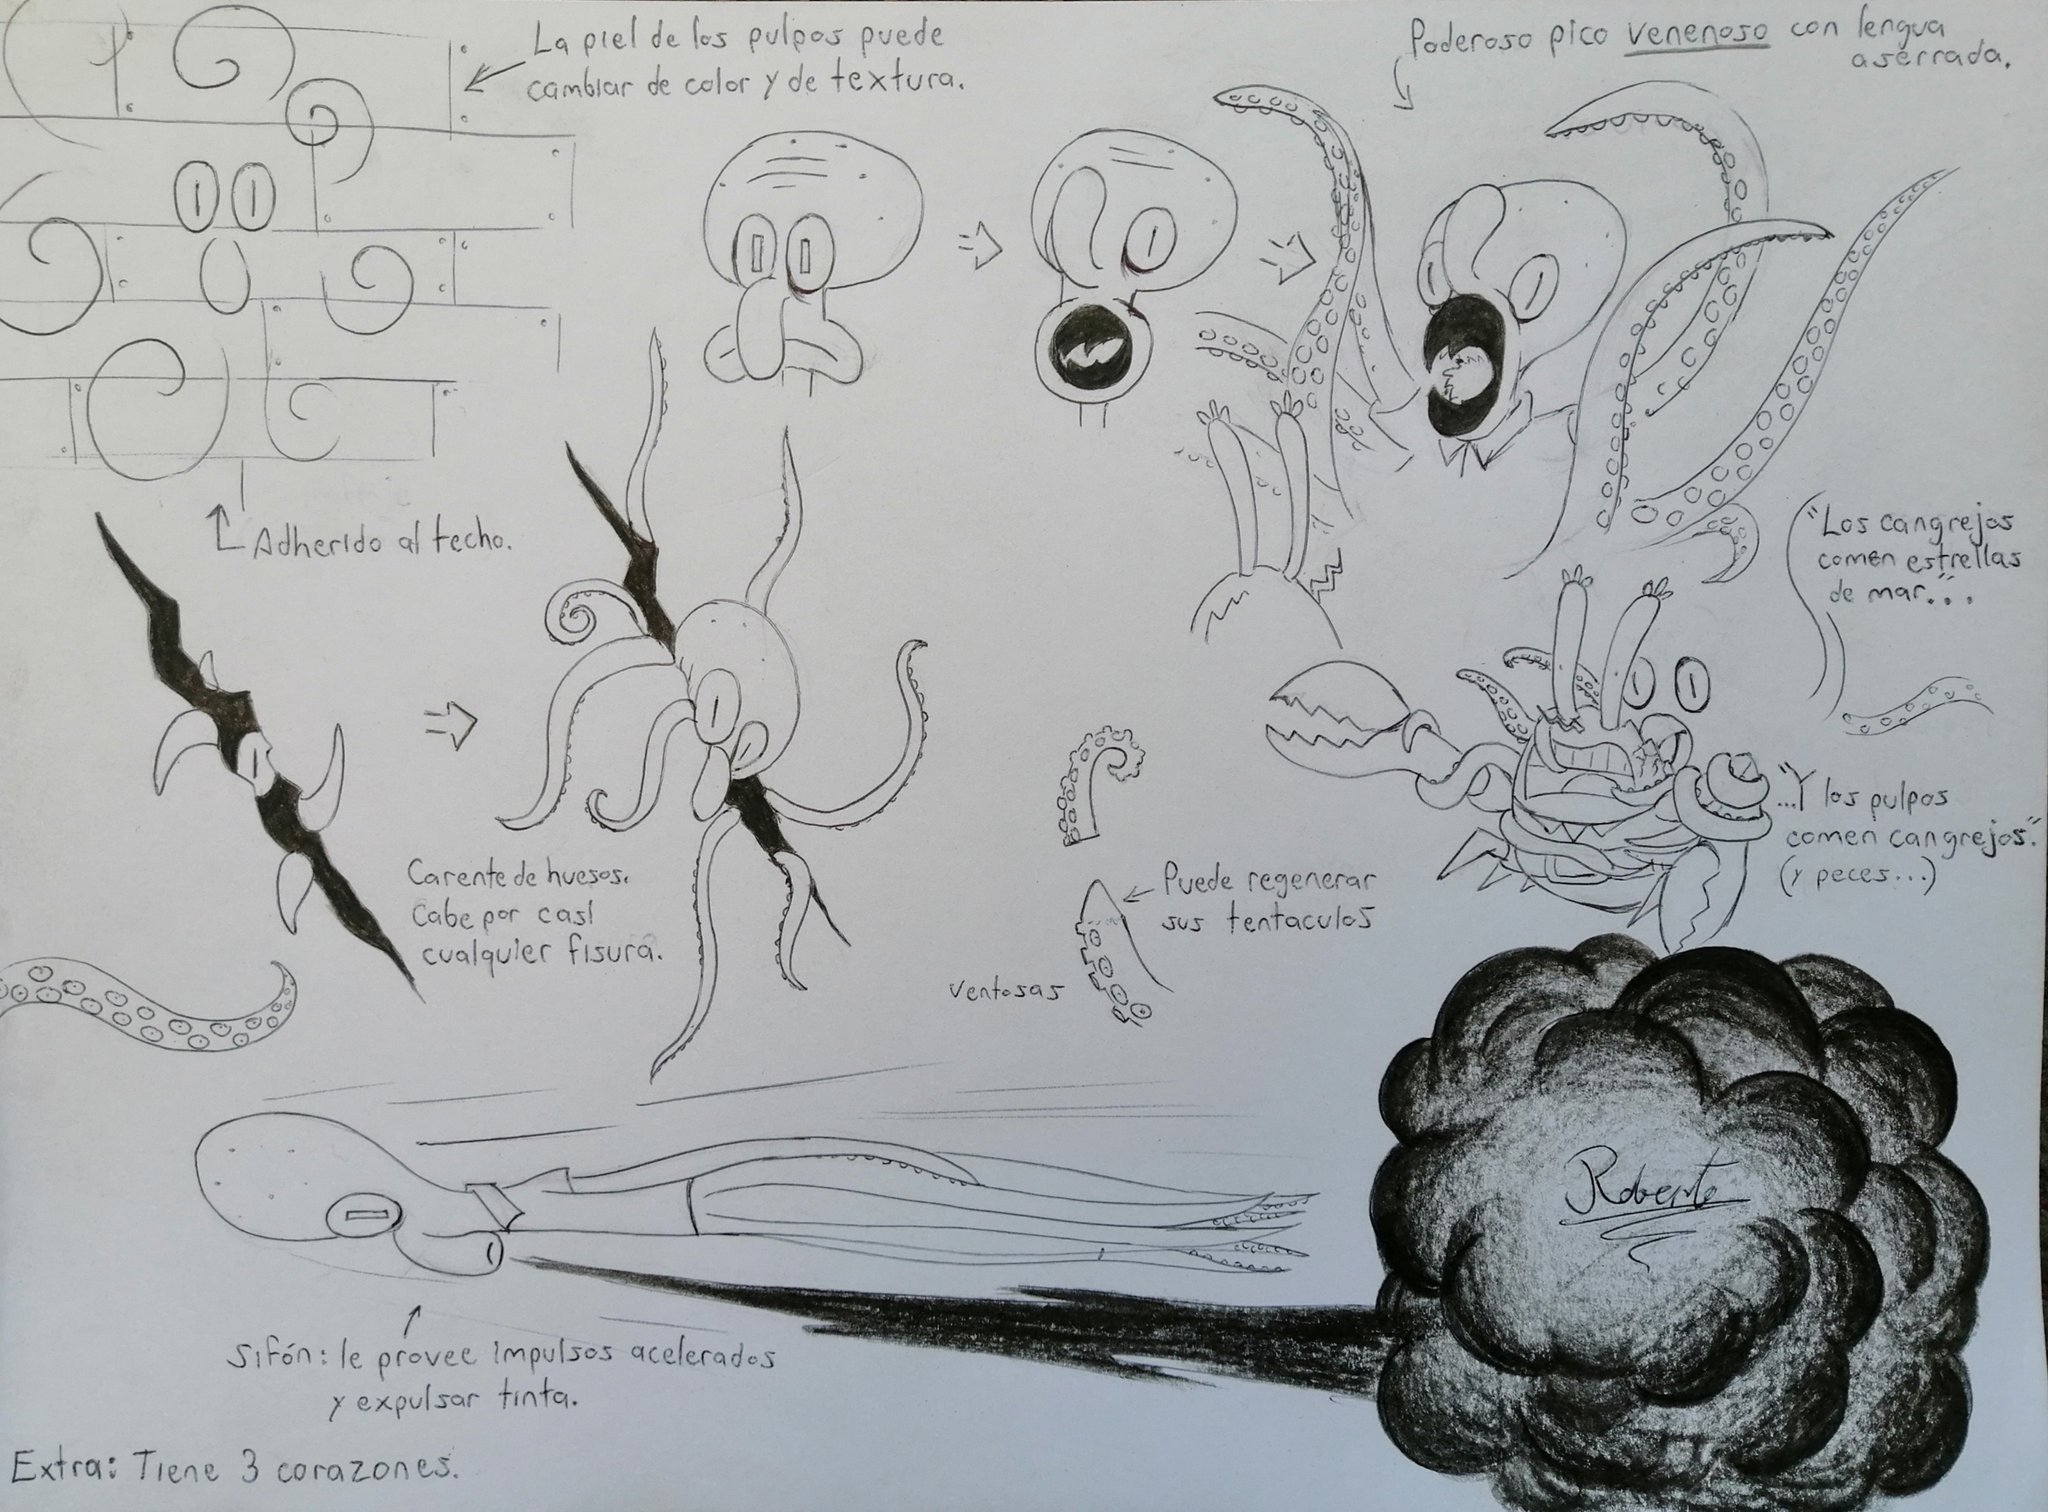 La piel de los pulpos puede
cambiar de color y de textura.
Poderoso pico venenoso con lengua
aserrada.
Adherido al techo.
"Los cangrejos
comen estrellas
de mar"...
Carente de huesos.
Cabe por casi
cualquier fisura.
Puede regenerar
sus tentaculos
ventosas
"...Y los pulpos
comen cangrejos."
(y peces...)
Roberto
Sifón: le provee impulsos acelerados
y expulsar tinta.
Extra: Tiene 3 corazones.